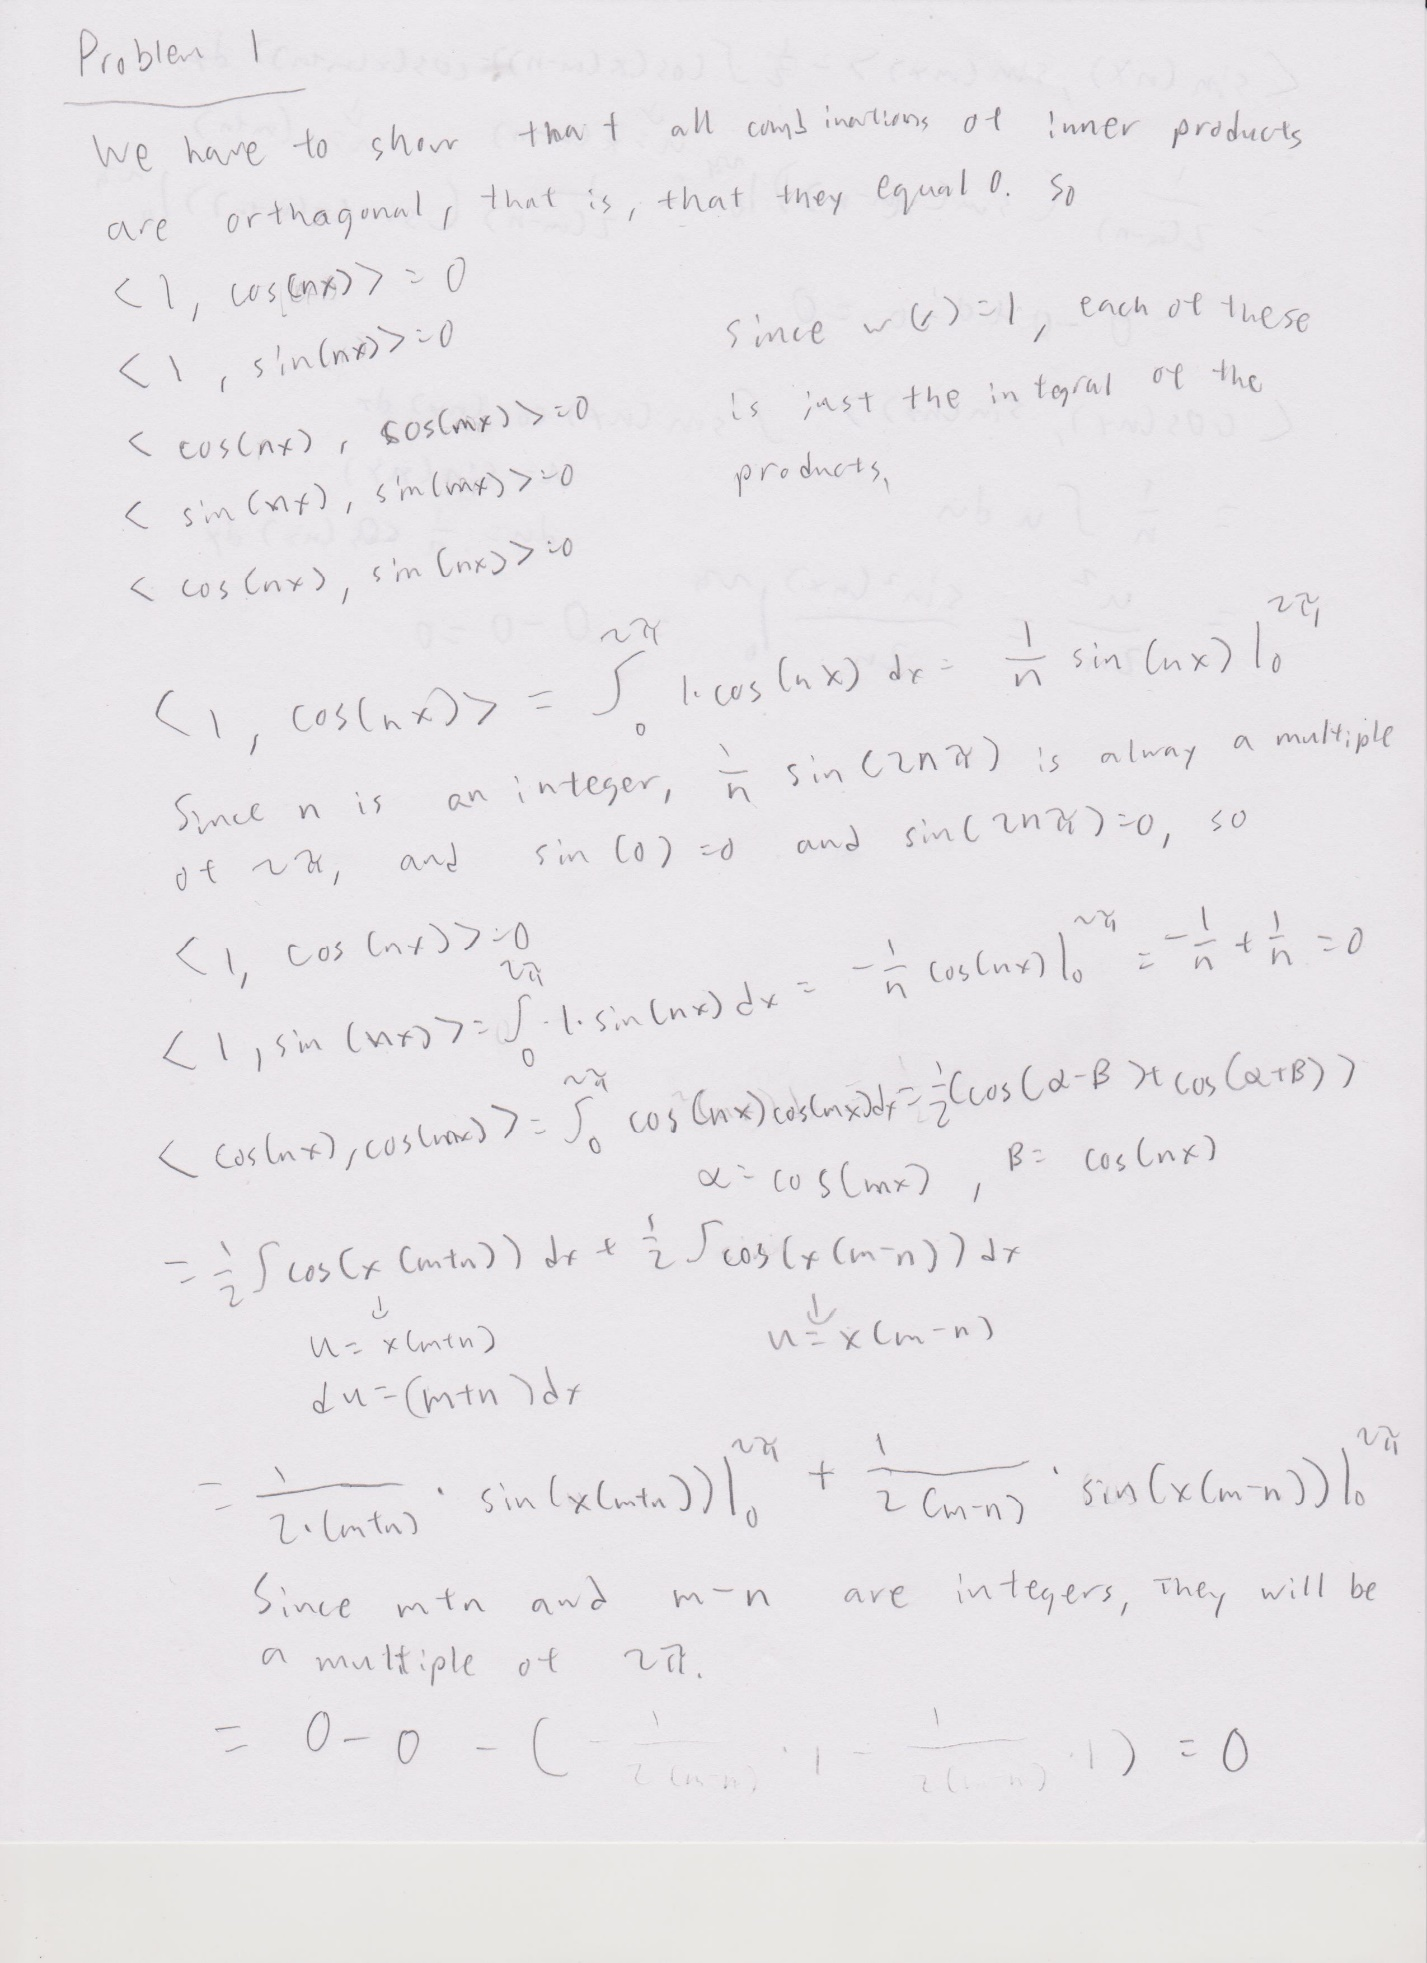 Problem 1
We have to show that all combinations of inner products
are orthagonal, that is, that they equal 0. So
<1, cos(nx)> = 0
<1, sin(nx)> = 0
<cos(nx), cos(mx)> = 0
<sin(nx), sin(mx)> = 0
<cos(nx), sin(nx)> = 0
Since w(x)=1, each of these
is just the integral of the
products,
<1, cos(nx)> = ∫₀^2π 1·cos(nx) dx = 1/n sin(nx) |₀^2π
Since n is an integer, 1/n sin(2nπ) is alway a multiple
of 2π, and sin(0)=0 and sin(2nπ)=0, so
<1, cos(nx)> = 0
<1, sin(nx)> = ∫₀^2π 1·sin(nx) dx = -1/n cos(nx) |₀^2π = -1/n + 1/n = 0
<cos(nx), cos(mx)> = ∫₀^2π cos(nx)cos(mx)dx = 1/2(cos(α-β)+cos(α+β))
α = cos(mx), β = cos(nx)
= 1/2 ∫cos(x(m+n)) dx + 1/2 ∫cos(x(m-n)) dx
↓ ↓
u = x(m+n) u = x(m-n)
du = (m+n)dx
= 1/(2·(m+n)) · sin(x(m+n)) |₀^2π + 1/(2(m-n)) · sin(x(m-n)) |₀^2π
Since m+n and m-n are integers, They will be
a multiple of 2π.
= 0-0 - ( ) = 0